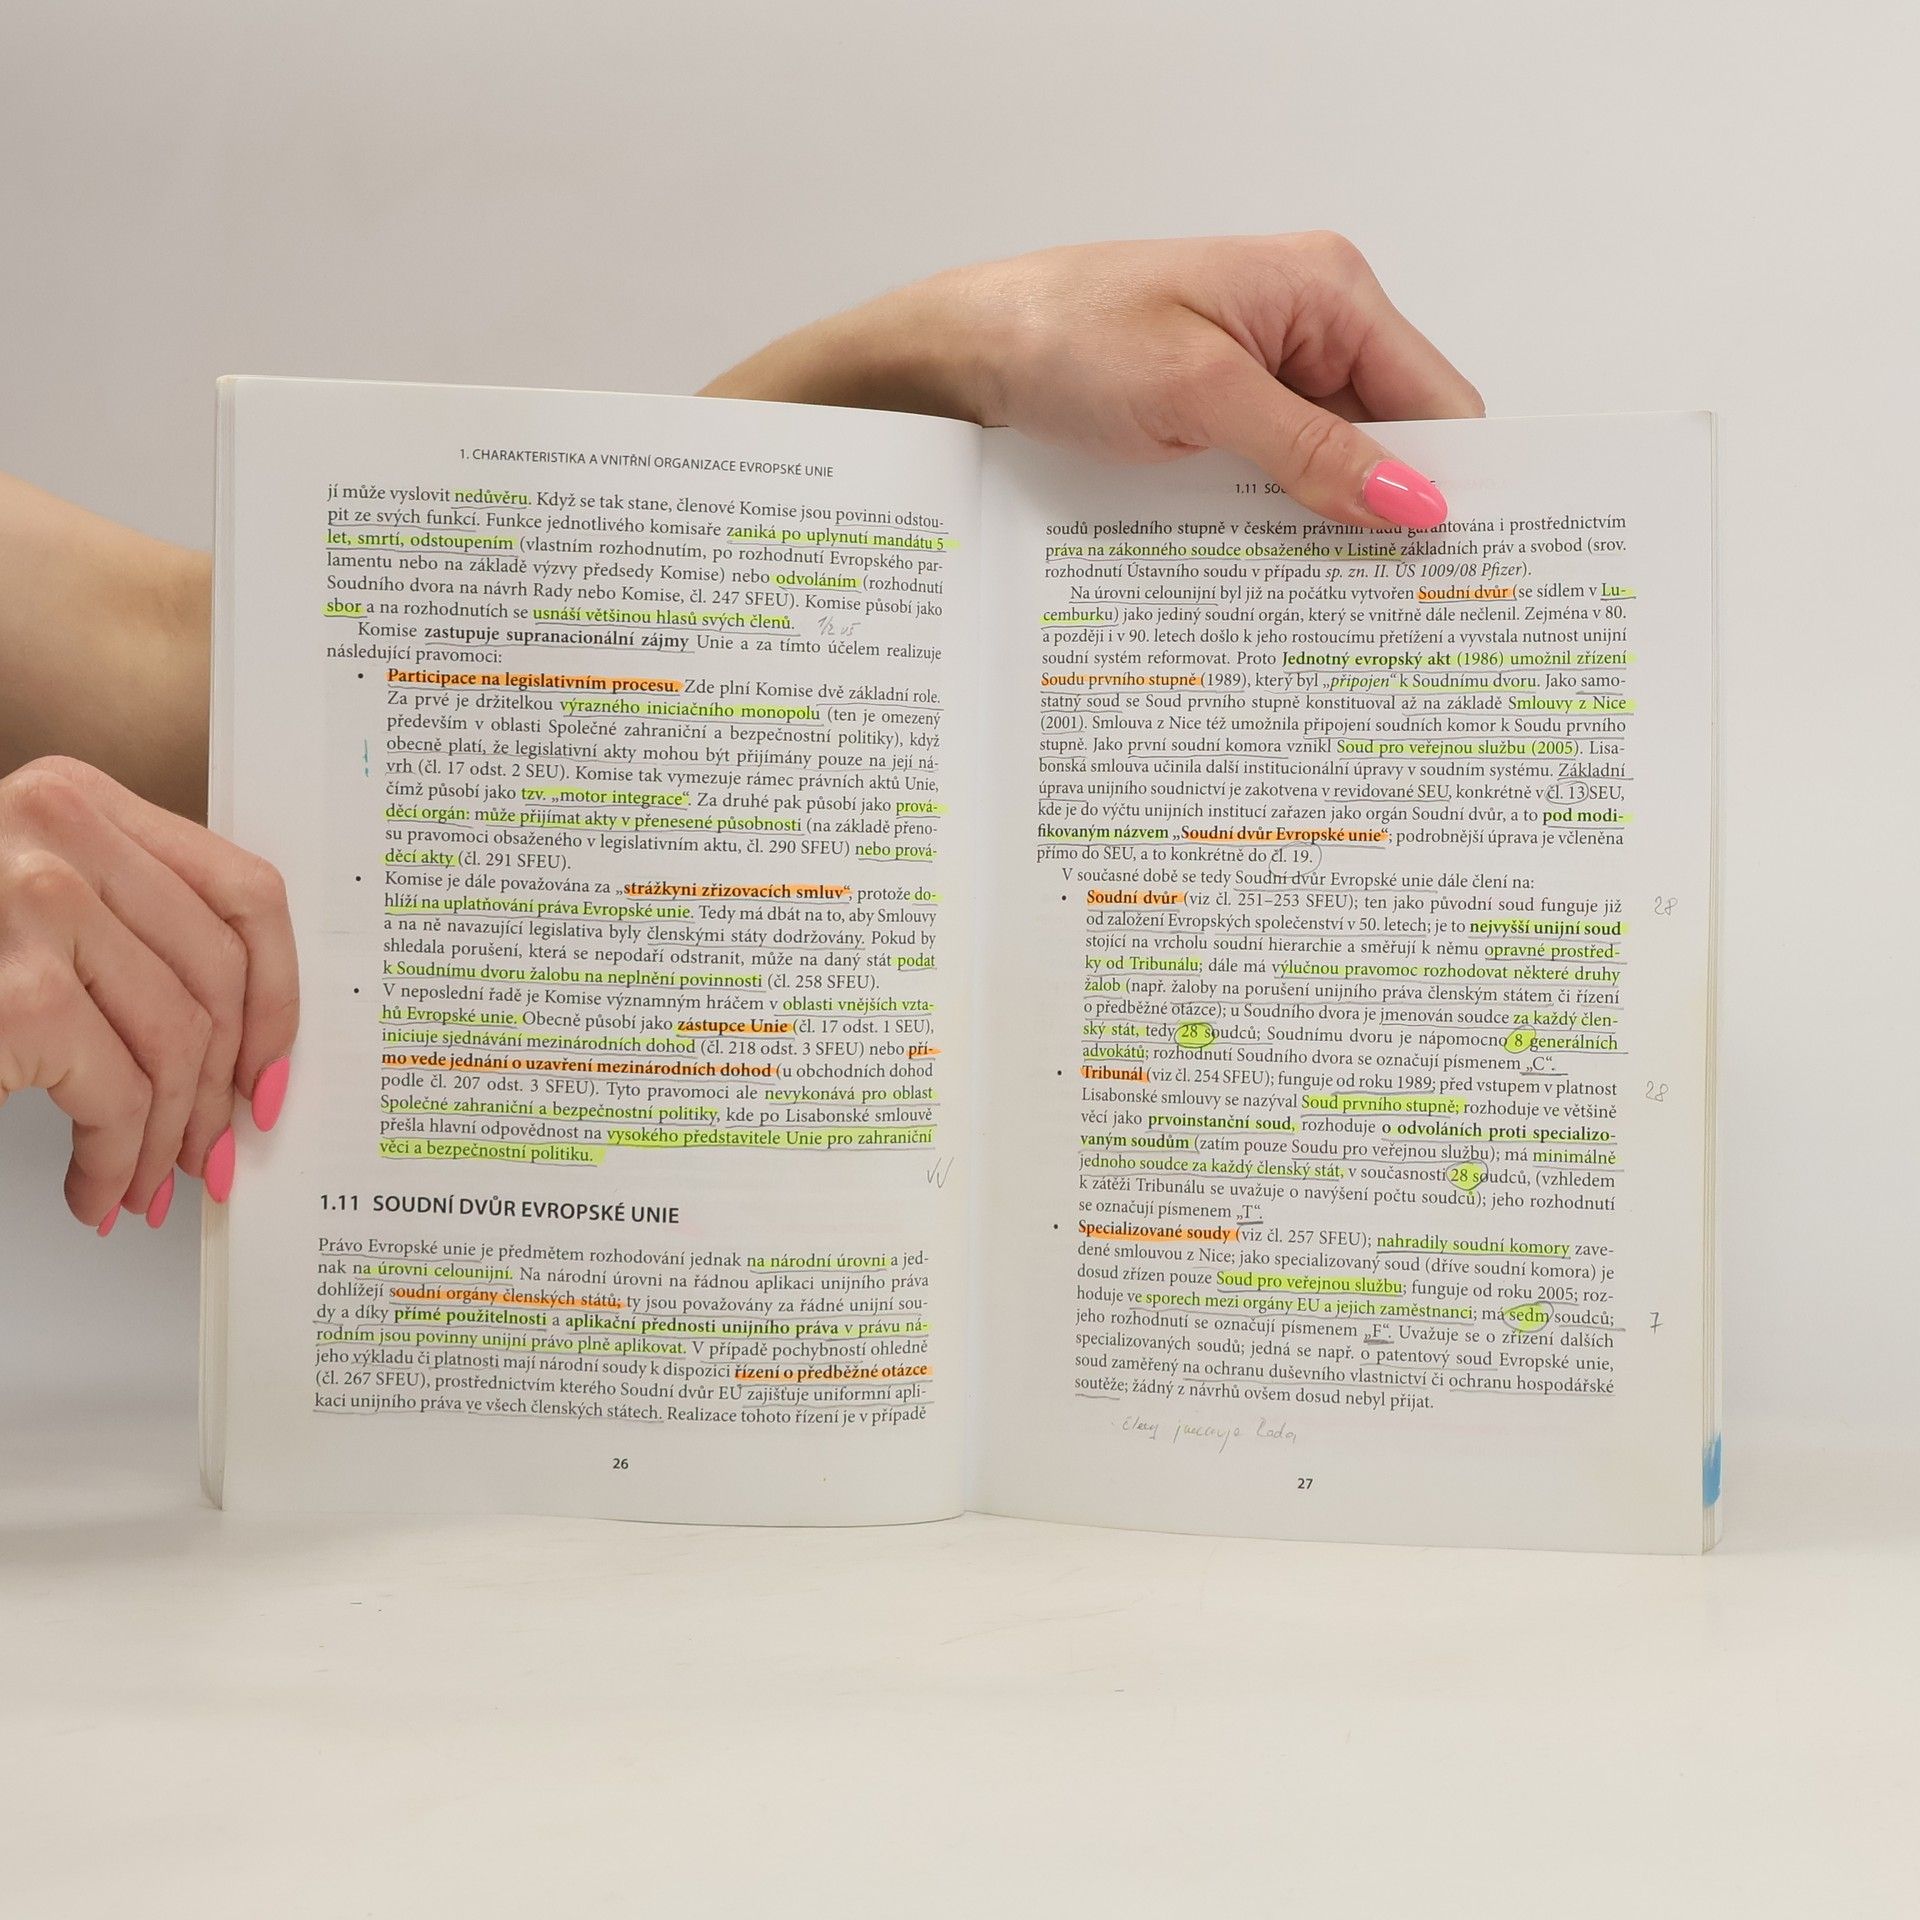 1. CHARAKTERISTIKA A VNITŘNÍ ORGANIZACE EVROPSKÉ UNIE
jí může vyslovit nedůvěru. Když se tak stane, členové Komise jsou povinni odstou-
pit ze svých funkcí. Funkce jednotlivého komisaře zaniká po uplynutí mandátu 5
let, smrtí, odstoupením (vlastním rozhodnutím, po rozhodnutí Evropského par-
lamentu nebo na základě výzvy předsedy Komise) nebo odvoláním (rozhodnutí
Soudního dvora na návrh Rady nebo Komise, čl. 247 SFEU). Komise působí jako
sbor a na rozhodnutích se usnáší většinou hlasů svých členů.
Komise zastupuje supranacionální zájmy Unie a za tímto účelem realizuje
následující pravomoci:
• Participace na legislativním procesu. Zde plní Komise dvě základní role.
Za prvé je držitelkou výrazného iniciačního monopolu (ten je omezený
především v oblasti Společné zahraniční a bezpečnostní politiky), když
obecně platí, že legislativní akty mohou být přijímány pouze na její ná-
vrh (čl. 17 odst. 2 SEU). Komise tak vymezuje rámec právních aktů Unie,
čímž působí jako tzv. „motor integrace“. Za druhé pak působí jako prová-
děcí orgán: může přijímat akty v přenesené působnosti (na základě přeno-
su pravomoci obsaženého v legislativním aktu, čl. 290 SFEU) nebo prová-
děcí akty (čl. 291 SFEU).
• Komise je dále považována za „strážkyni zřizovacích smluv“, protože do-
hlíží na uplatňování práva Evropské unie. Tedy má dbát na to, aby Smlouvy
a na ně navazující legislativa byly členskými státy dodržovány. Pokud by
shledala porušení, která se nepodaří odstranit, může na daný stát podat
k Soudnímu dvoru žalobu na neplnění povinnosti (čl. 258 SFEU).
• V neposlední řadě je Komise významným hráčem v oblasti vnějších vzta-
hů Evropské unie. Obecně působí jako zástupce Unie (čl. 17 odst. 1 SEU),
iniciuje sjednávání mezinárodních dohod (čl. 218 odst. 3 SFEU) nebo pří-
mo vede jednání o uzavření mezinárodních dohod (u obchodních dohod
podle čl. 207 odst. 3 SFEU). Tyto pravomoci ale nevykonává pro oblast
Společné zahraniční a bezpečnostní politiky, kde po Lisabonské smlouvě
přešla hlavní odpovědnost na vysokého představitele Unie pro zahraniční
věci a bezpečnostní politiku.
1.11 SOUDNÍ DVŮR EVROPSKÉ UNIE
Právo Evropské unie je předmětem rozhodování jednak na národní úrovni a jed-
nak na úrovni celounijní. Na národní úrovni na řádnou aplikaci unijního práva
dohlížejí soudní orgány členských států; ty jsou považovány za řádné unijní sou-
dy a díky přímé použitelnosti a aplikační přednosti unijního práva v právu ná-
rodním jsou povinny unijní právo plně aplikovat. V případě pochybností ohledně
jeho výkladu či platnosti mají národní soudy k dispozici řízení o předběžné otázce
(čl. 267 SFEU), prostřednictvím kterého Soudní dvůr EU zajišťuje uniformní apli-
kaci unijního práva ve všech členských státech. Realizace tohoto řízení je v případě
26
1.11
soudů posledního stupně v českém právním řádu garantována i prostřednictvím
práva na zákonného soudce obsaženého v Listině základních práv a svobod (srov.
rozhodnutí Ústavního soudu v případu sp. zn. II. ÚS 1009/08 Pfizer).
Na úrovni celounijní byl již na počátku vytvořen Soudní dvůr (se sídlem v Lu-
cemburku) jako jediný soudní orgán, který se vnitřně dále nečlenil. Zejména v 80.
a později i v 90. letech došlo k jeho rostoucímu přetížení a vyvstala nutnost unijní
soudní systém reformovat. Proto Jednotný evropský akt (1986) umožnil zřízení
Soudu prvního stupně (1989), který byl „připojen“ k Soudnímu dvoru. Jako samo-
statný soud se Soud prvního stupně konstituoval až na základě Smlouvy z Nice
(2001). Smlouva z Nice též umožnila připojení soudních komor k Soudu prvního
stupně. Jako první soudní komora vznikl Soud pro veřejnou službu (2005). Lisa-
bonská smlouva učinila další institucionální úpravy v soudním systému. Základní
úprava unijního soudnictví je zakotvena v revidované SEU, konkrétně v čl. 13 SEU,
kde je do výčtu unijních institucí zařazen jako orgán Soudní dvůr, a to pod modi-
fikovaným názvem „Soudní dvůr Evropské unie“; podrobnější úprava je včleněna
přímo do SEU, a to konkrétně do čl. 19.
V současné době se tedy Soudní dvůr Evropské unie dále člení na:
• Soudní dvůr (viz čl. 251–253 SFEU); ten jako původní soud funguje již 28
od založení Evropských společenství v 50. letech; je to nejvyšší unijní soud
stojící na vrcholu soudní hierarchie a směřují k němu opravné prostřed-
ky od Tribunálu; dále má výlučnou pravomoc rozhodovat některé druhy
žalob (např. žaloby na porušení unijního práva členským státem či řízení
o předběžné otázce); u Soudního dvora je jmenován soudce za každý člen-
ský stát, tedy 28 soudců; Soudnímu dvoru je nápomocno 8 generálních
advokátů; rozhodnutí Soudního dvora se označují písmenem „C“.
• Tribunál (viz čl. 254 SFEU); funguje od roku 1989; před vstupem v platnost 28
Lisabonské smlouvy se nazýval Soud prvního stupně; rozhoduje ve většině
věcí jako prvoinstanční soud, rozhoduje o odvoláních proti specializo-
vaným soudům (zatím pouze Soudu pro veřejnou službu); má minimálně
jednoho soudce za každý členský stát, v současnosti 28 soudců, (vzhledem
k zátěži Tribunálu se uvažuje o navýšení počtu soudců); jeho rozhodnutí
se označují písmenem „T“.
• Specializované soudy (viz čl. 257 SFEU); nahradily soudní komory zave-
dené smlouvou z Nice; jako specializovaný soud (dříve soudní komora) je
dosud zřízen pouze Soud pro veřejnou službu; funguje od roku 2005; roz-
hoduje ve sporech mezi orgány EU a jejich zaměstnanci; má sedm soudců; 7
jeho rozhodnutí se označují písmenem „F“. Uvažuje se o zřízení dalších
specializovaných soudů; jedná se např. o patentový soud Evropské unie,
soud zaměřený na ochranu duševního vlastnictví či ochranu hospodářské
soutěže; žádný z návrhů ovšem dosud nebyl přijat.
27